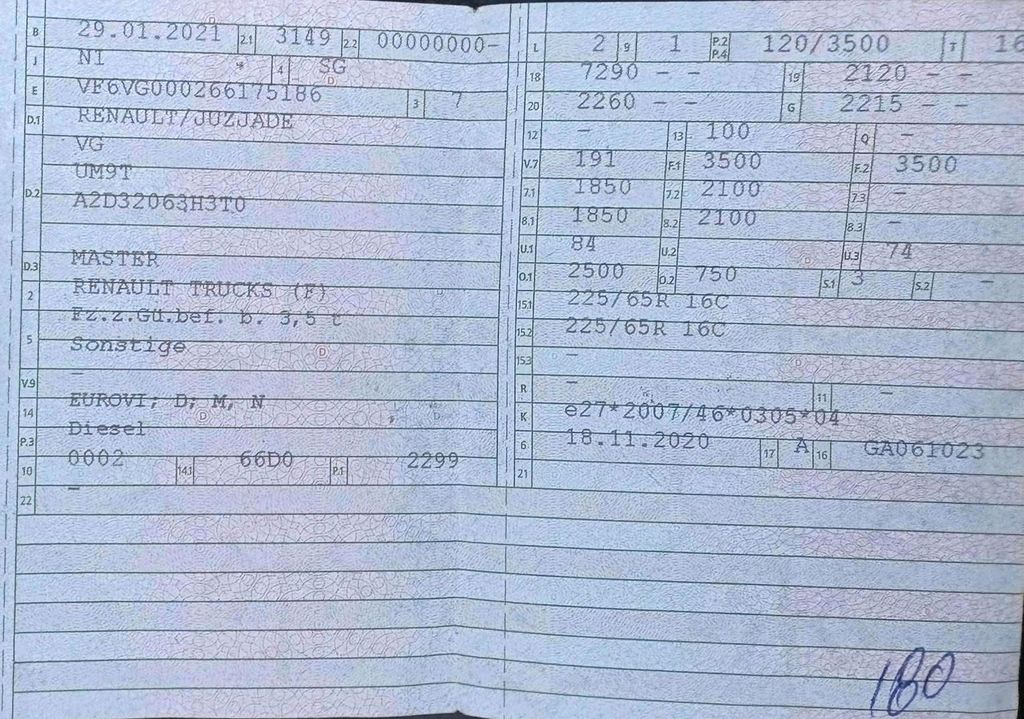 B 29.01.2021 2.1 3149 2.2 00000000-
J N1 * 4 SG
E VF6VG000266175186 3 7
D.1 RENAULT/JUZJADE
VG
D.2 UM9T
A2D32063H3T0
D.3 MASTER
2 RENAULT TRUCKS (F)
Fz.z.Gü.bef. b. 3,5 t
5 Sonstige
V.9 -
14 EUROVI; D; M, N
P.3 Diesel
10 0002 14.1 66D0 P.1 2299
22 -
L 2 9 1 P.2 P.4 120/3500 T 16
18 7290 - - 19 2120 - -
20 2260 - - G 2215 - -
12 - 13 100 Q -
V.7 191 F.1 3500 F.2 3500
7.1 1850 7.2 2100 7.3 -
8.1 1850 8.2 2100 8.3 -
U.1 84 U.2 U.3 74
O.1 2500 O.2 750 S.1 3 S.2 -
15.1 225/65R 16C
15.2 225/65R 16C
15.3 -
R - 11 -
K e27*2007/46*0305*04
6 18.11.2020 17 A 16 GA061023
21
180